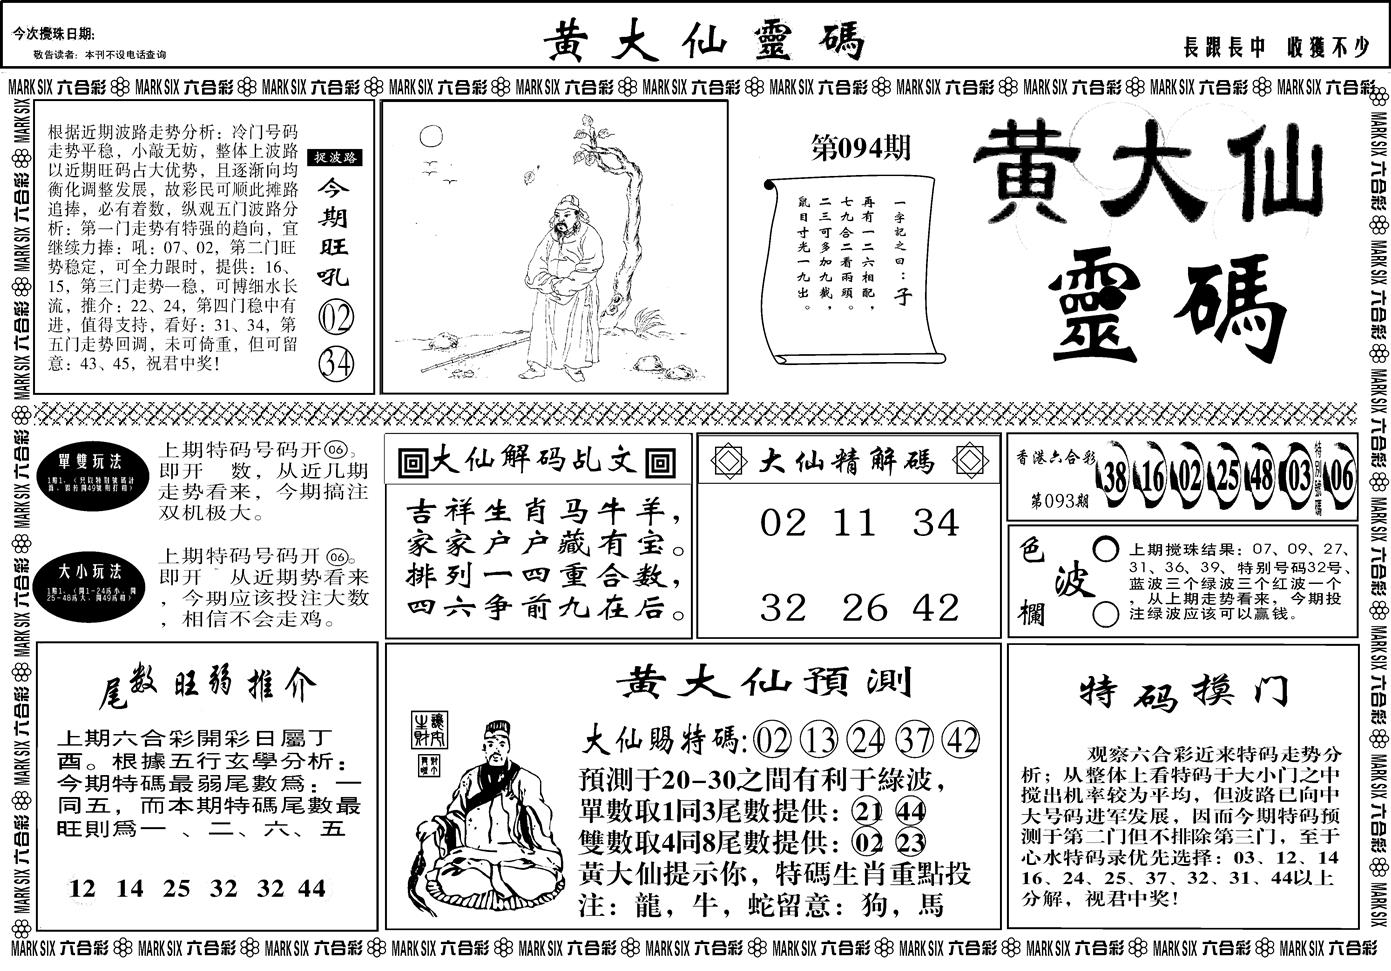 今次攪珠日期:
敬告读者：本刊不设电话查询
黄大仙靈碼
長跟長中 收獲不少
MARK SIX 六合彩 MARK SIX 六合彩 MARK SIX 六合彩 MARK SIX 六合彩 MARK SIX 六合彩 MARK SIX 六合彩 MARK SIX 六合彩 MARK SIX 六合彩 MARK SIX 六合彩 MARK SIX 六合彩 MARK SIX 六合彩
根据近期波路走势分析：冷门号码
走势平稳，小敲无妨，整体上波路
以近期旺码占大优势，且逐渐向均
衡化调整发展，故彩民可顺此摊路
追捧，必有着数，纵观五门波路分
析：第一门走势有特强的趋向，宜
继续力捧：吼：07、02，第二门旺
势稳定，可全力跟时，提供：16、
15，第三门走势一稳，可博细水长
流，推介：22、24，第四门稳中有
进，值得支持，看好：31、34，第
五门走势回调，未可倚重，但可留
意：43、45，祝君中奖！
捉波路
今期旺吼
02
34
第094期
一字記之曰：子
再有一二六相配，
七九合二看兩頭。
二三可多加九截，
鼠目寸光一九出。
黄大仙
靈碼
單雙玩法
上期特码号码开06。
即开 数，从近几期
走势看来，今期搞注
双机极大。
大小玩法
1賠1，（開1-24為小，開
25-48為大，開49為和）
上期特码号码开06。
即开 从近期势看来
，今期应该投注大数
，相信不会走鸡。
大仙解码乩文
吉祥生肖马牛羊，
家家户户藏有宝。
排列一四重合数，
四六争前九在后。
大仙精解碼
02 11 34
32 26 42
香港六合彩
第093期
38 16 02 25 48 03
特別號碼
06
色波欄
上期搅珠结果：07、09、27、
31、36、39、特别号码32号、
蓝波三个绿波三个红波一个
，从上期走势看来，今期投
注绿波应该可以赢钱。
尾数旺弱推介
上期六合彩開彩日屬丁
酉。根據五行玄學分析：
今期特碼最弱尾數爲：一
同五，而本期特碼尾數最
旺則爲一 、二、六、五
12 14 25 32 32 44
黄大仙預測
大仙賜特碼:02 13 24 37 42
預測于20-30之間有利于綠波，
單數取1同3尾數提供：21 44
雙數取4同8尾數提供：02 23
黃大仙提示你，特碼生肖重點投
注：龍，牛，蛇留意：狗，馬
特码摸门
观察六合彩近来特码走势分
析；从整体上看特码于大小门之中
搅出机率较为平均，但波路已向中
大号码进军发展，因而今期特码预
测于第二门但不排除第三门，至于
心水特码录优先选择：03、12、14
16、24、25、37、32、31、44以上
分解，祝君中奖！
MARK SIX 六合彩 MARK SIX 六合彩 MARK SIX 六合彩 MARK SIX 六合彩 MARK SIX 六合彩 MARK SIX 六合彩 MARK SIX 六合彩 MARK SIX 六合彩 MARK SIX 六合彩 MARK SIX 六合彩 MARK SIX 六合彩